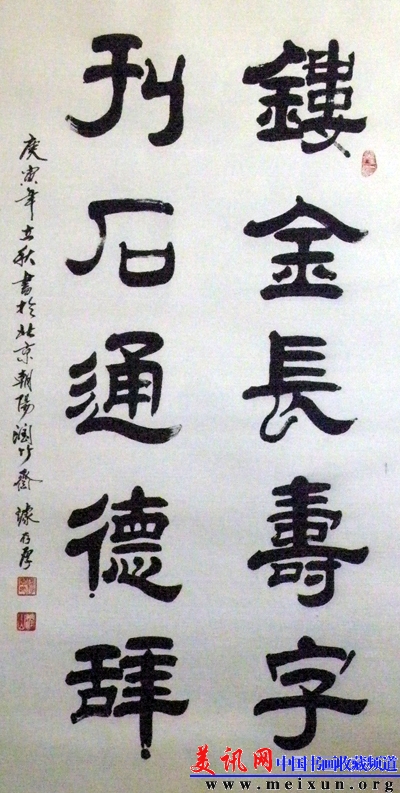 鏤金長壽字
刊石通德辞
庚寅年立秋書於北京朝陽竹齋
美讯网 中国书画收藏频道
www.meixun.org